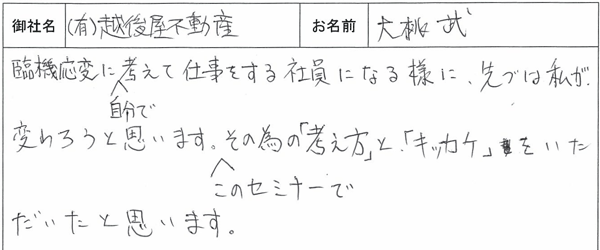 御社名 (有)越後屋不動産 お名前 大桃 武
臨機応変に考えて仕事をする社員になる様に、先づは私が、
自分で
変わろうと思います。その為の「考え方」と、「キッカケ」をいた
このセミナーで
だいたと思います。